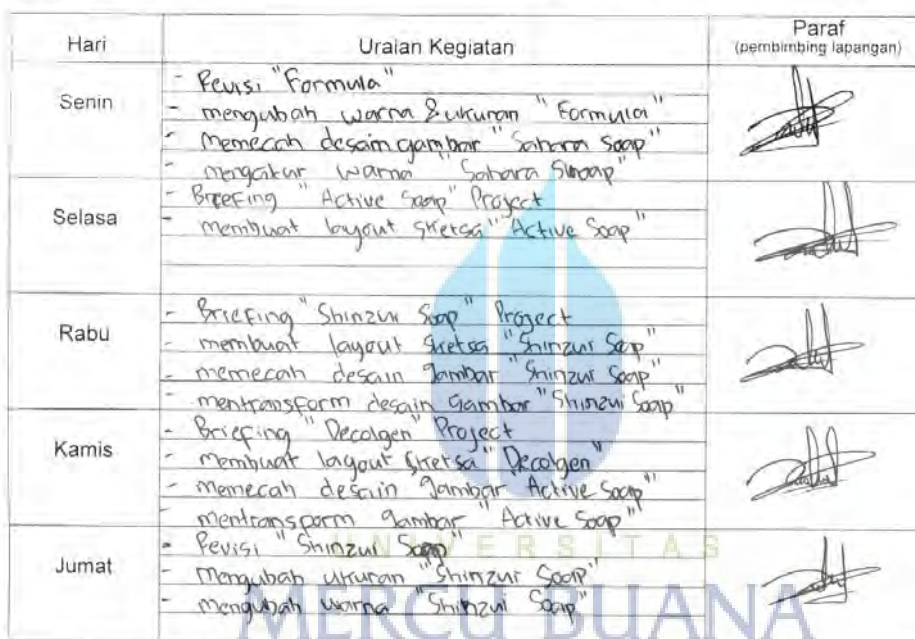 Hari Uraian Kegiatan Paraf
(pembimbing lapangan)
Senin
- Revisi "Formula"
- mengubah warna & ukuran "Formula"
- memecah desain gambar "Sahara Soap"
- mengatur warna "Sahara Soap"
Selasa
- Breefing "Active Soap" Project
- membuat layout sketsa "Active Soap"
Rabu
- Briefing "Shinzui Soap" Project
- membuat layout sketsa "Shinzui Soap"
- memecah desain gambar "Shinzui Soap"
- mentransform desain gambar "Shinzui Soap"
Kamis
- Briefing "Decolgen" Project
- membuat layout sketsa "Decolgen"
- memecah desain gambar "Active Soap"
- mentransform gambar "Active Soap"
Jumat
- Revisi "Shinzui Soap"
- Mengubah ukuran "Shinzui Soap"
- mengubah warna "Shinzui Soap"
UNIVERSITAS
MERCU BUANA